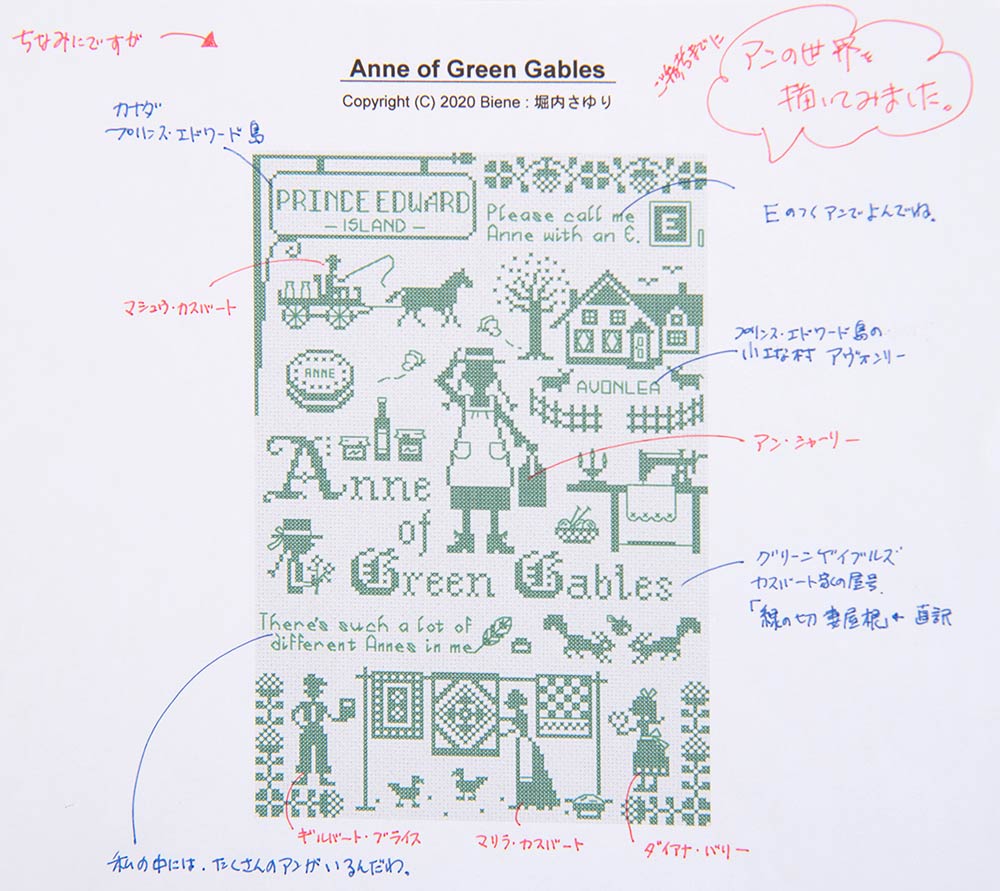 ちなみにですが
Anne of Green Gables
Copyright (C) 2020 Biene : 堀内さゆり
アンの世界を
描いてみました。
カナダ
プリンス・エドワード島
PRINCE EDWARD
– ISLAND –
Please call me
Anne with an E.
E
Eのつくアンでよんでね。
マシュウ・カスバート
プリンス・エドワード島の
小さな村 アヴォンリー
ANNE
AVONLEA
アン・シャーリー
Anne
of
Green Gables
グリーンゲイブルズ
カスバート家の屋号
「緑の切妻屋根」← 直訳
There's such a lot of
different Annes in me
ギルバート・ブライス
マリラ・カスバート
ダイアナ・バリー
私の中には、たくさんのアンがいるんだわ。